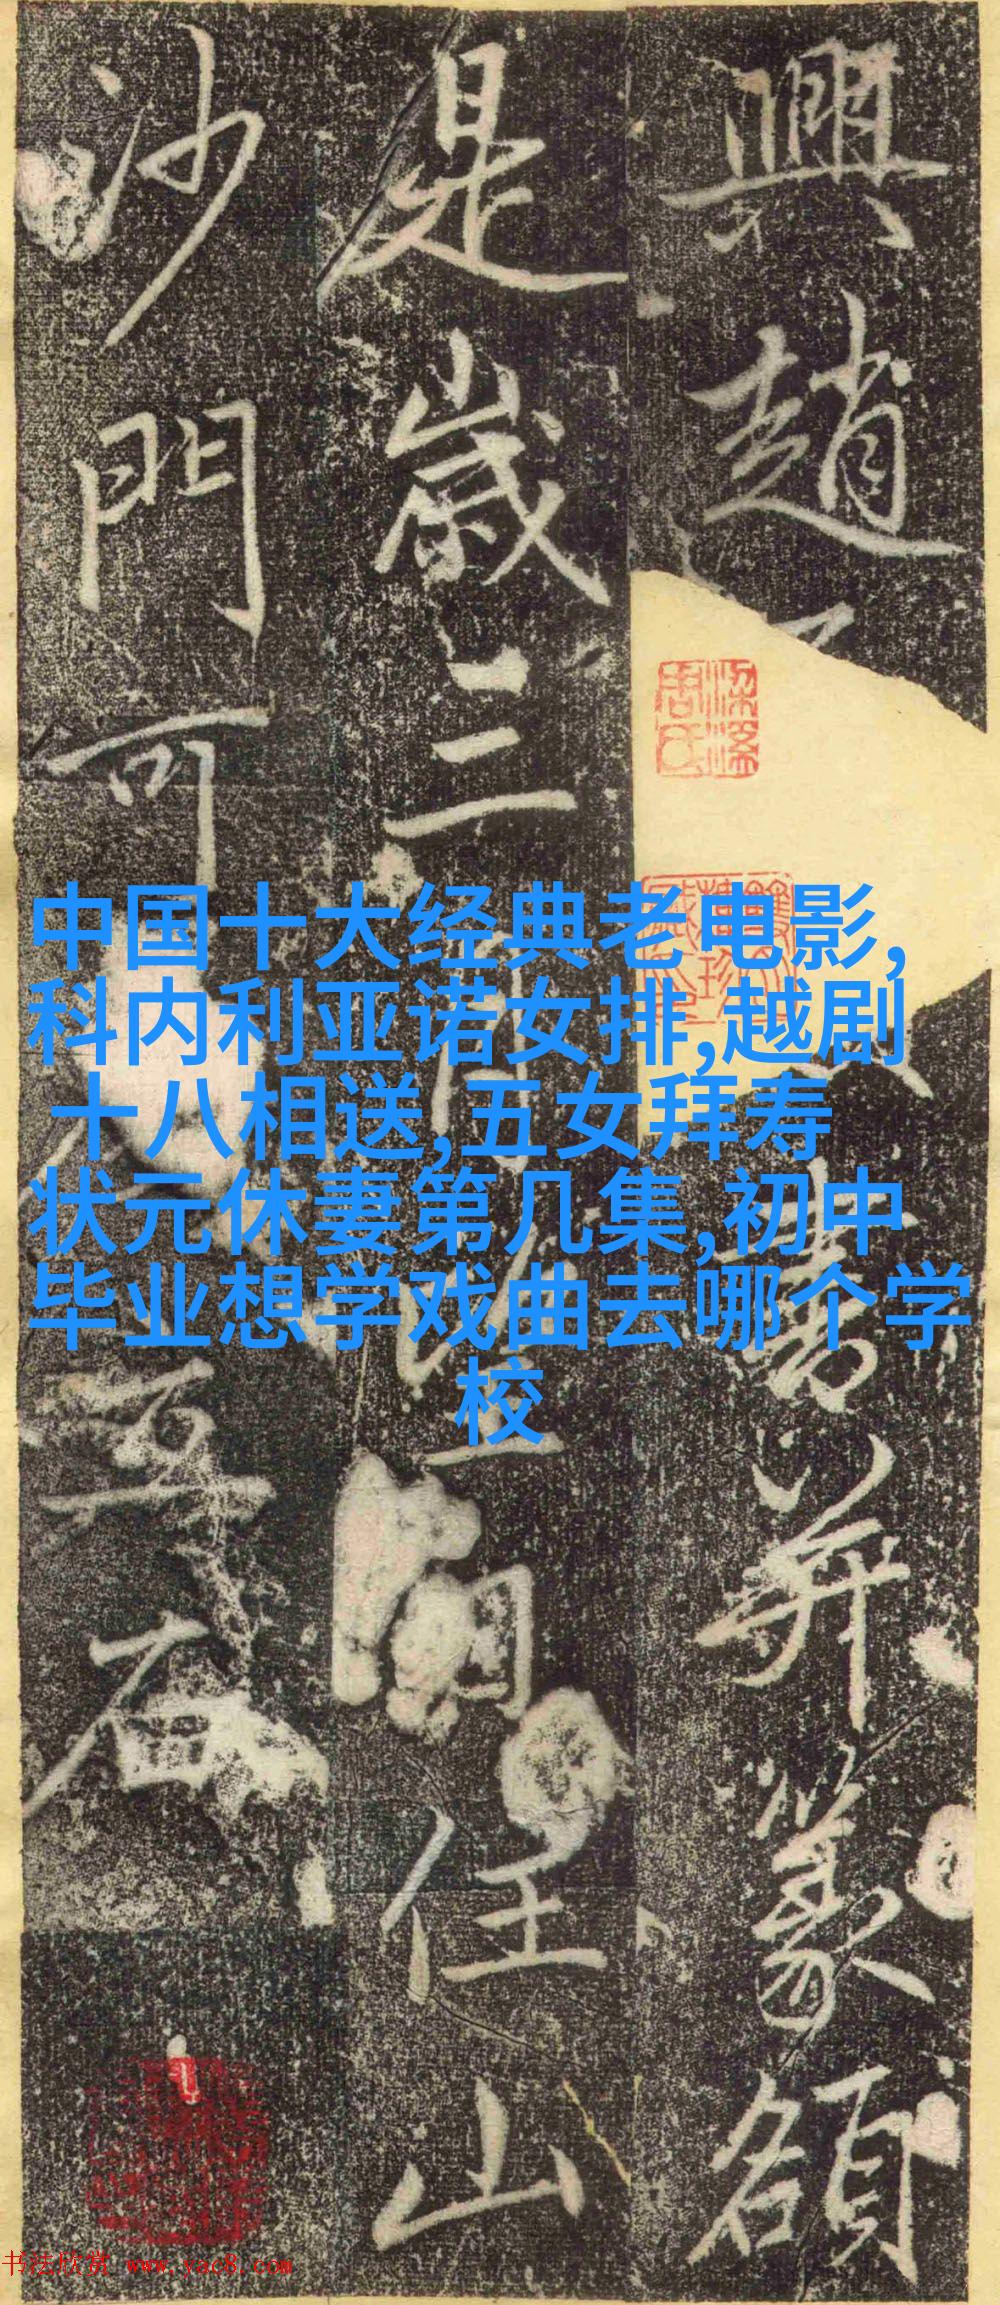 興趙
書并篆額
是歲三
任山
沙門可
中国十大经典老电影,
科内利亚诺女排,越剧
十八相送,五女拜寿
状元休妻第几集,初中
毕业想学戏曲去哪个学
校
书法欣赏 www.yac8.com